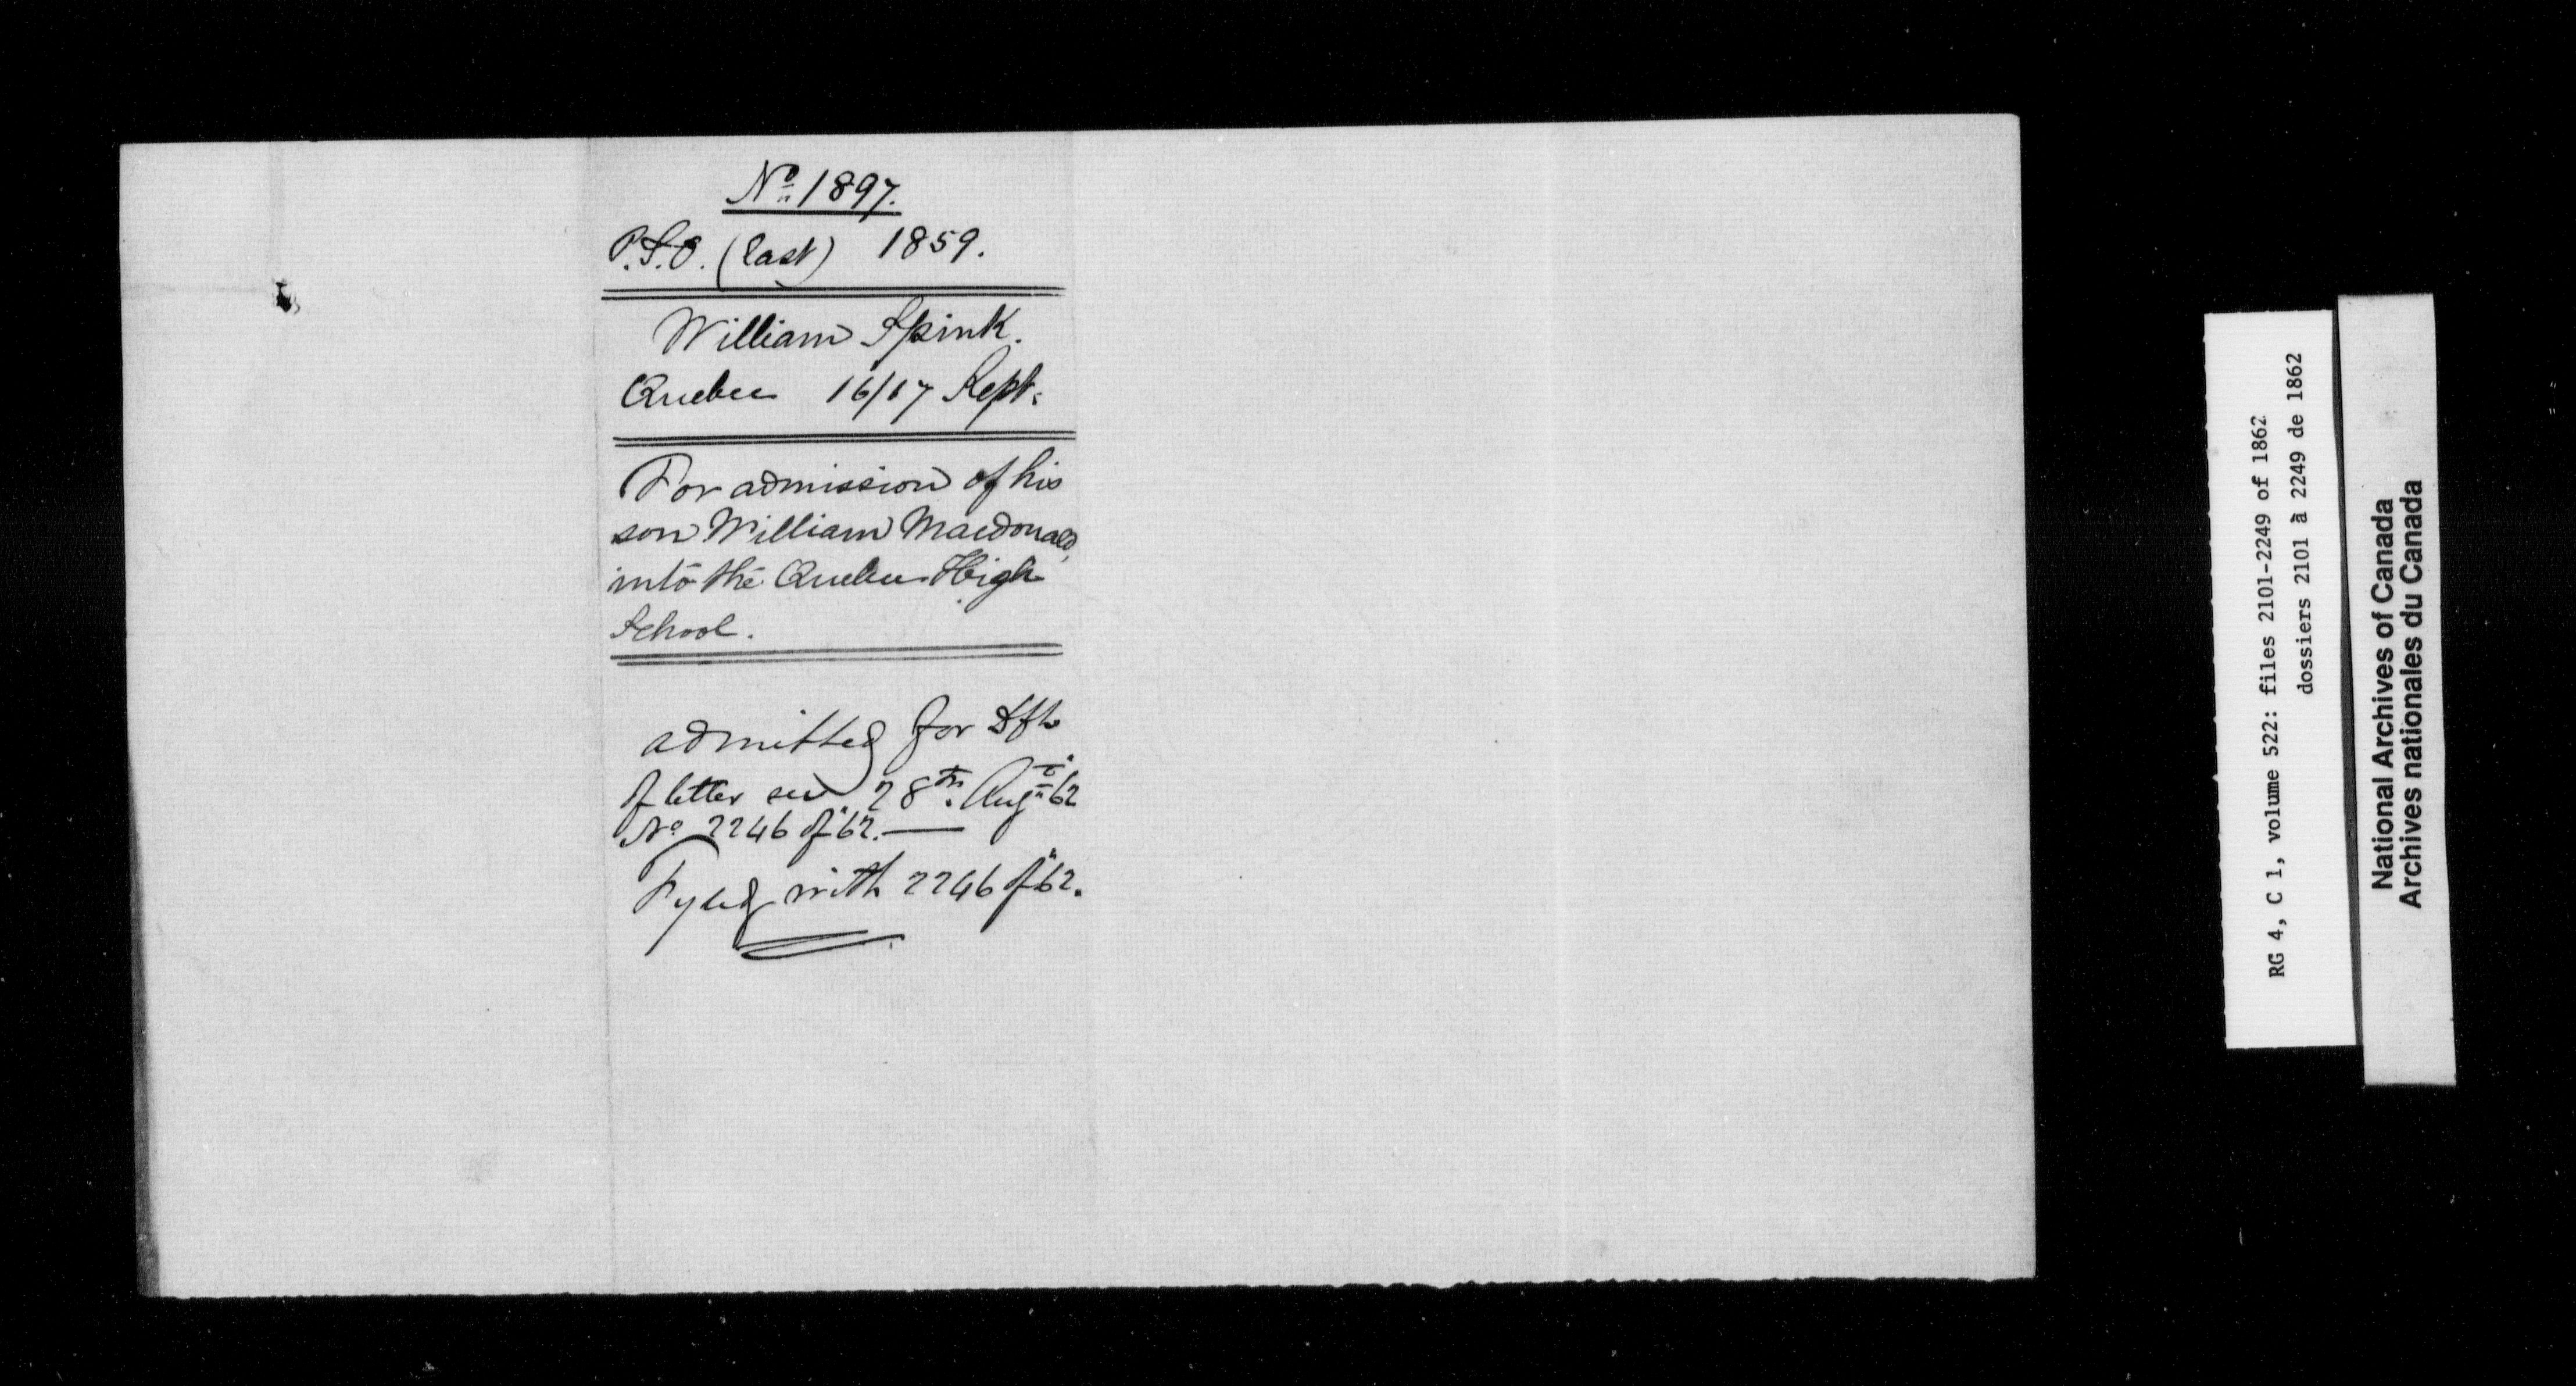 No. 1897.
P.S.O. (East) 1859.
William Spink.
Quebec 16/17 Sept.
For admission of his
son William Macdonald,
into the Quebec High
School.
admitted for Dft
of letter see 28th. Augt "62
No 2246 of "62.
Fyled with 2246 of "62.
RG 4, C 1, volume 522: files 2101-2249 of 1862
dossiers 2101 à 2249 de 1862
National Archives of Canada
Archives nationales du Canada